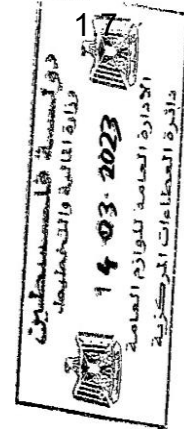 17
دولة فلسطين
وزارة المالية والتخطيط
14-03-2023
الإدارة العامة للوازم العامة
دائرة العطاءات المركزية